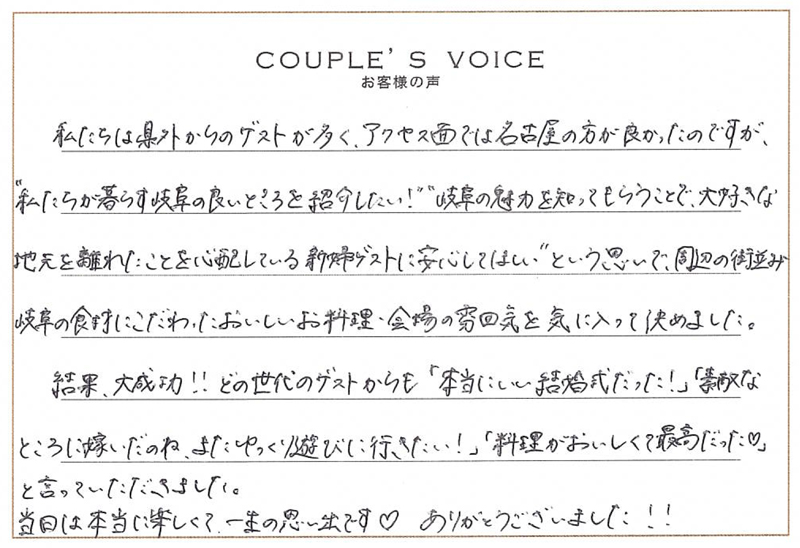 COUPLE'S VOICE
お客様の声
私たちは県外からのゲストが多く、アクセス面では名古屋の方が良かったのですが、
"私たちが暮らす岐阜の良いところを紹介したい!""岐阜の魅力を知ってもらうことで、大好きな
地元を離れたことを心配している新婦ゲストに安心してほしい"という思いで、周辺の街並み
岐阜の食材にこだわったおいしいお料理・会場の雰囲気を気に入って決めました。
結果、大成功!!どの世代のゲストからも「本当にいい結婚式だった!」「素敵な
ところに嫁いだのね、またゆっくり遊びに行きたい!」「料理がおいしくて最高だった♡」
と言っていただきました。
当日は本当に楽しくて、一生の思い出です♡ ありがとうございました!!